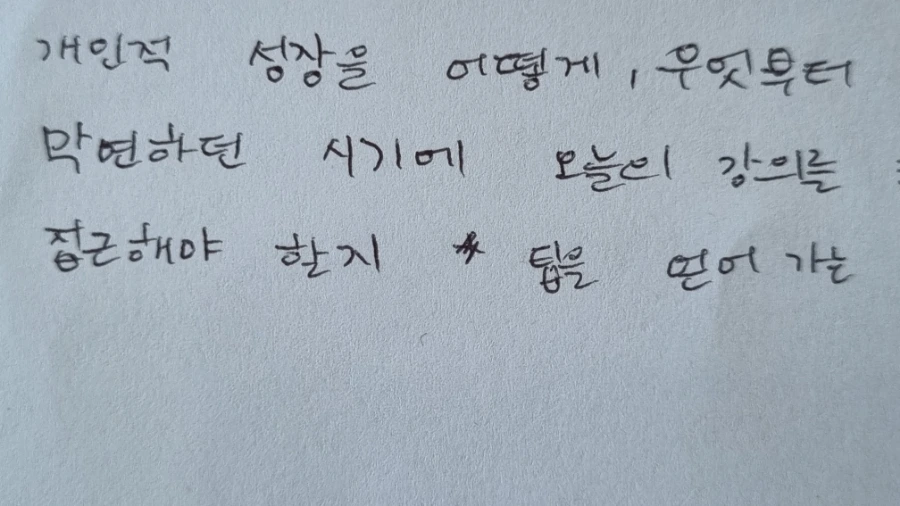 개인적 성장을 어떻게, 무엇부터
막연하던 시기에 오늘의 강의를
접근해야 할지 팁을 얻어 가는